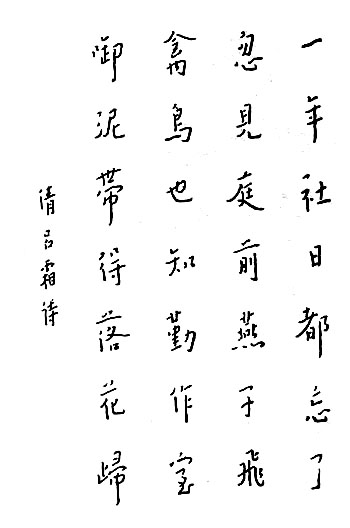 一年社日都忘了
忽見庭前燕子飛
禽鳥也知勤作室
啣泥帶得落花歸
清吕霜诗